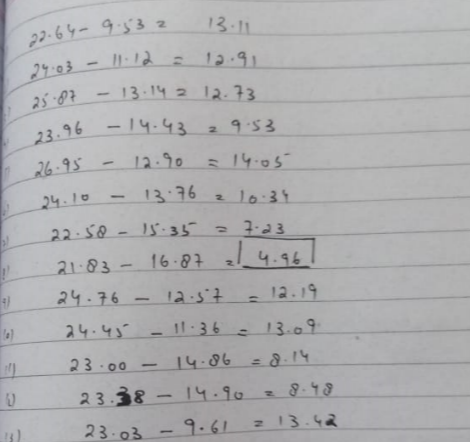 22.64 - 9.53 = 13.11
24.03 - 11.12 = 12.91
25.87 - 13.14 = 12.73
23.96 - 14.43 = 9.53
26.95 - 12.90 = 14.05
24.10 - 13.76 = 10.34
22.58 - 15.35 = 7.23
21.83 - 16.87 = 4.96
9) 24.76 - 12.57 = 12.19
10) 24.45 - 11.36 = 13.09
11) 23.00 - 14.86 = 8.14
23.38 - 14.90 = 8.48
13) 23.03 - 9.61 = 13.42